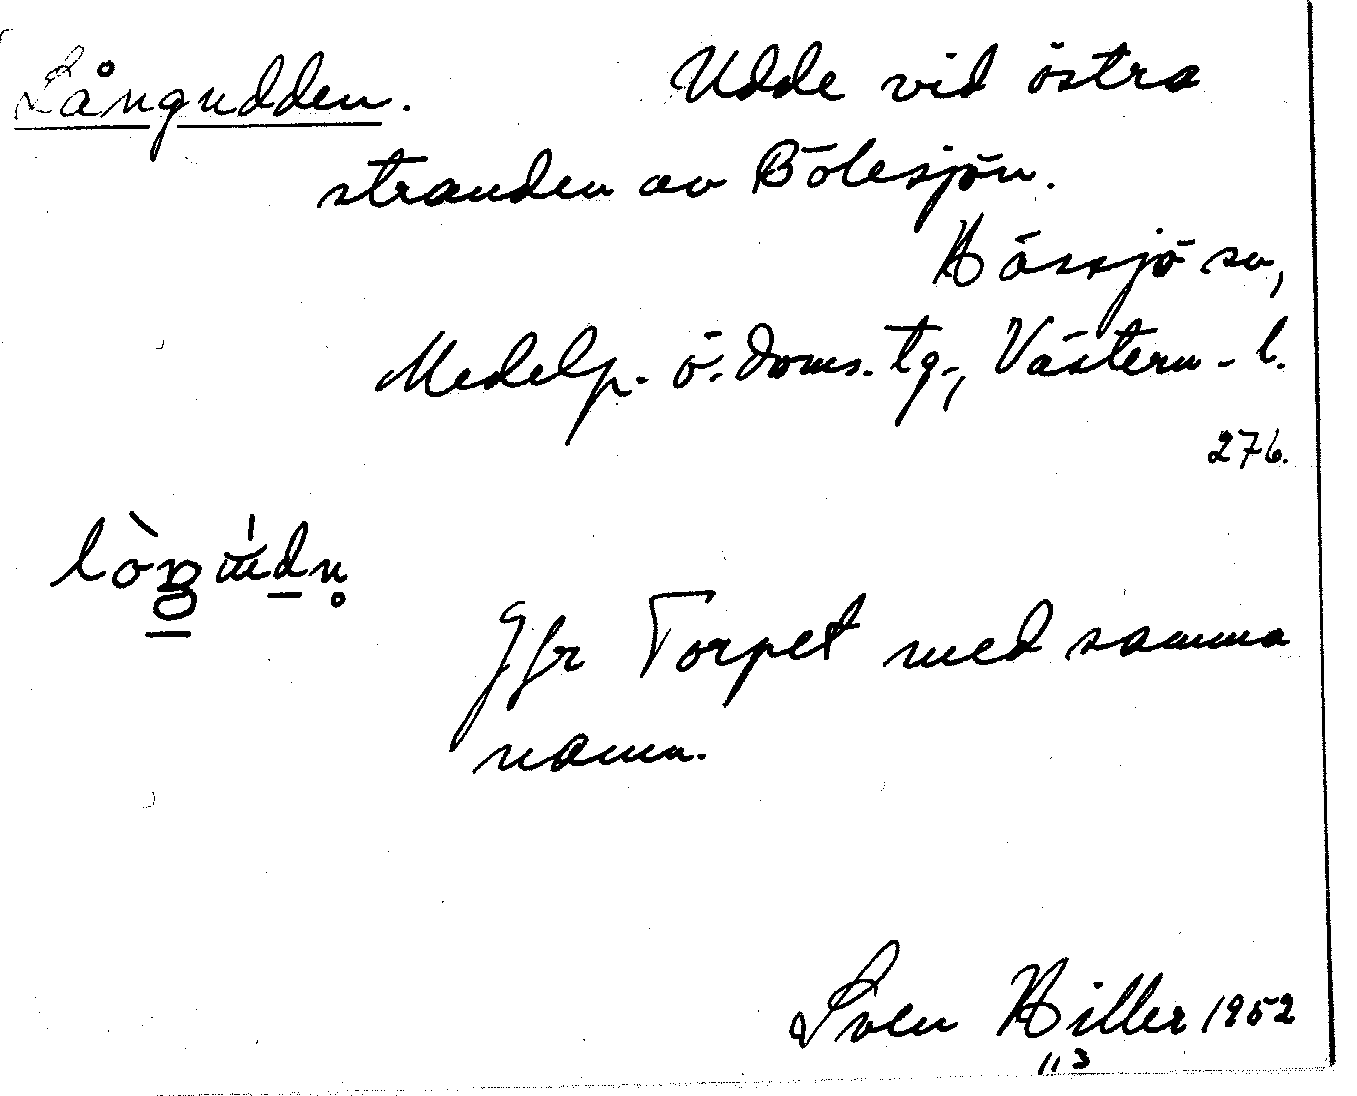 Långudden. Udde vid östra
stranden av Bölesjön.
Hässjö sn,
Medelp. ö. doms. tg., Västern - l.
276.
Jfr Torpet med samma
namn.
Sven Hiller 1952
113